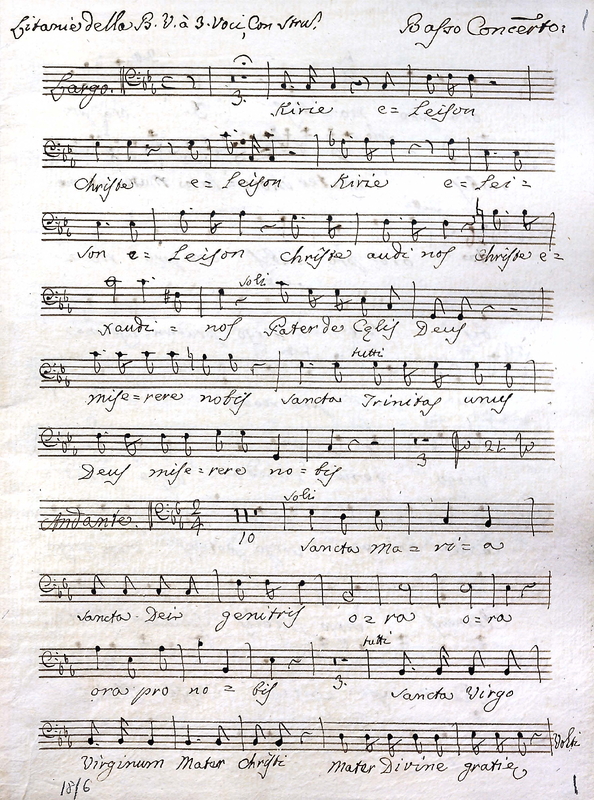 Litanie della B. V. à 3. Voci, Con Stru.ti Basso Concerto:
Largo. 3.
Kirie e= leison
Christe e= leison Kirie e= lei=
son e= leison Christe audi nos Christe e=
soli
xaudi = nos Pater de Cęlis Deus
tutti
mise=rere nobis sancta Trinitas unus
Deus mise=rere no=bis 3
soli
Andante. 2/4 10
sancta ma = ri = a
sancta Dei genitris o=ra o=ra
tutti
ora pro no = bis 3. sancta Virgo
Volti
Virginum Mater Christi Mater Divinę gratię
1816